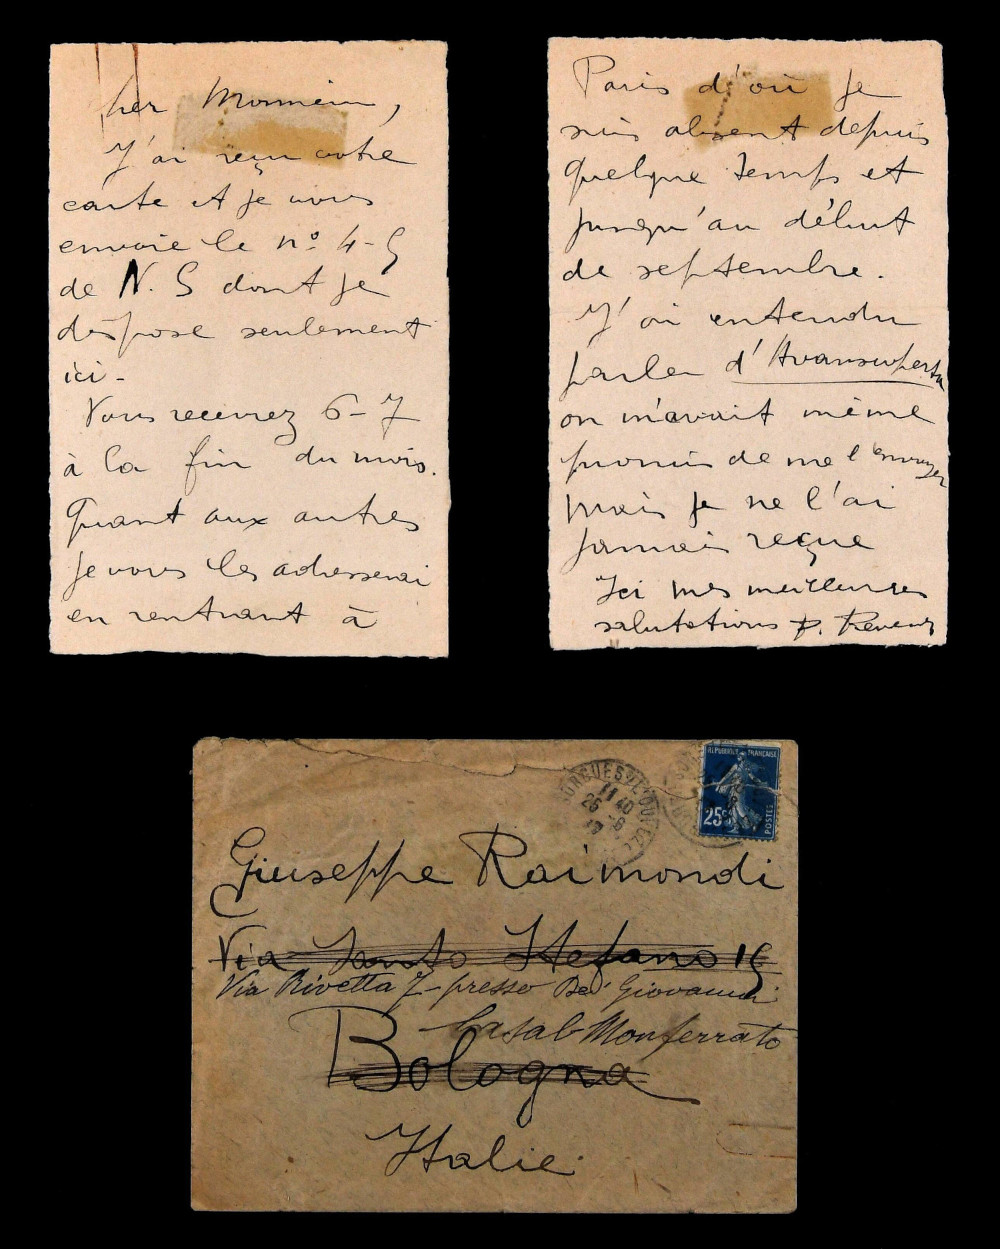 her Monsieur,
J'ai reçu votre
carte et je vous
envoie le nº 4-5
de N. S dont je
dispose seulement
ici-
Vous recevrez 6-7
à la fin du mois.
Quant aux autres
je vous les adresserai
en rentrant à
Paris d'où je
suis absent depuis
quelque temps et
jusqu'au début
de septembre.
J'ai entendu
parler d'Avanscoperta
on m'avait même
promis de me l'envoyer
mais je ne l'ai
jamais reçue
Ici mes meilleures
salutations P. Reverdy
SORGUES
11 40
25 -8
RÉPUBLIQUE FRANÇAISE
25c
POSTES
Giuseppe Raimondi
Via Santo Stefano 15
Via Rivetta 7- presso Bed' Giovanni
Casal-Monferrato
Bologna
Italie